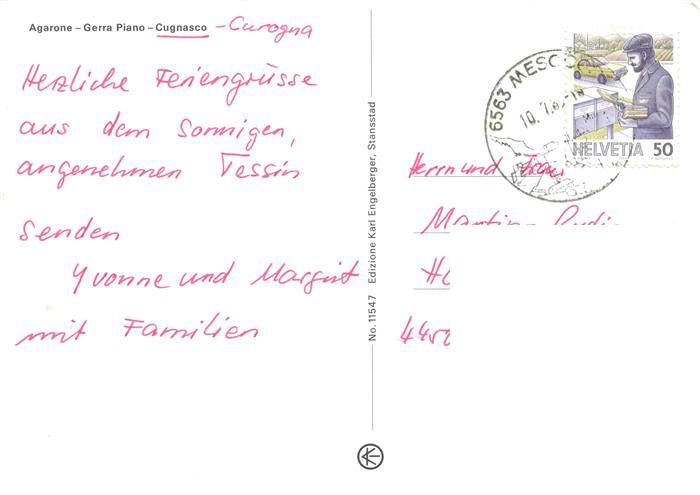 Agarone – Gerra Piano – Cugnasco - Curogna
Herzliche Feriengrüsse
aus dem Sonnigen,
angenehmen Tessin
senden
Yvonne und Margrit
mit Familien
No. 11547 Edizione Karl Engelberger, Stansstad
6563 MESOCCO
HELVETIA 50
Herrn und Frau